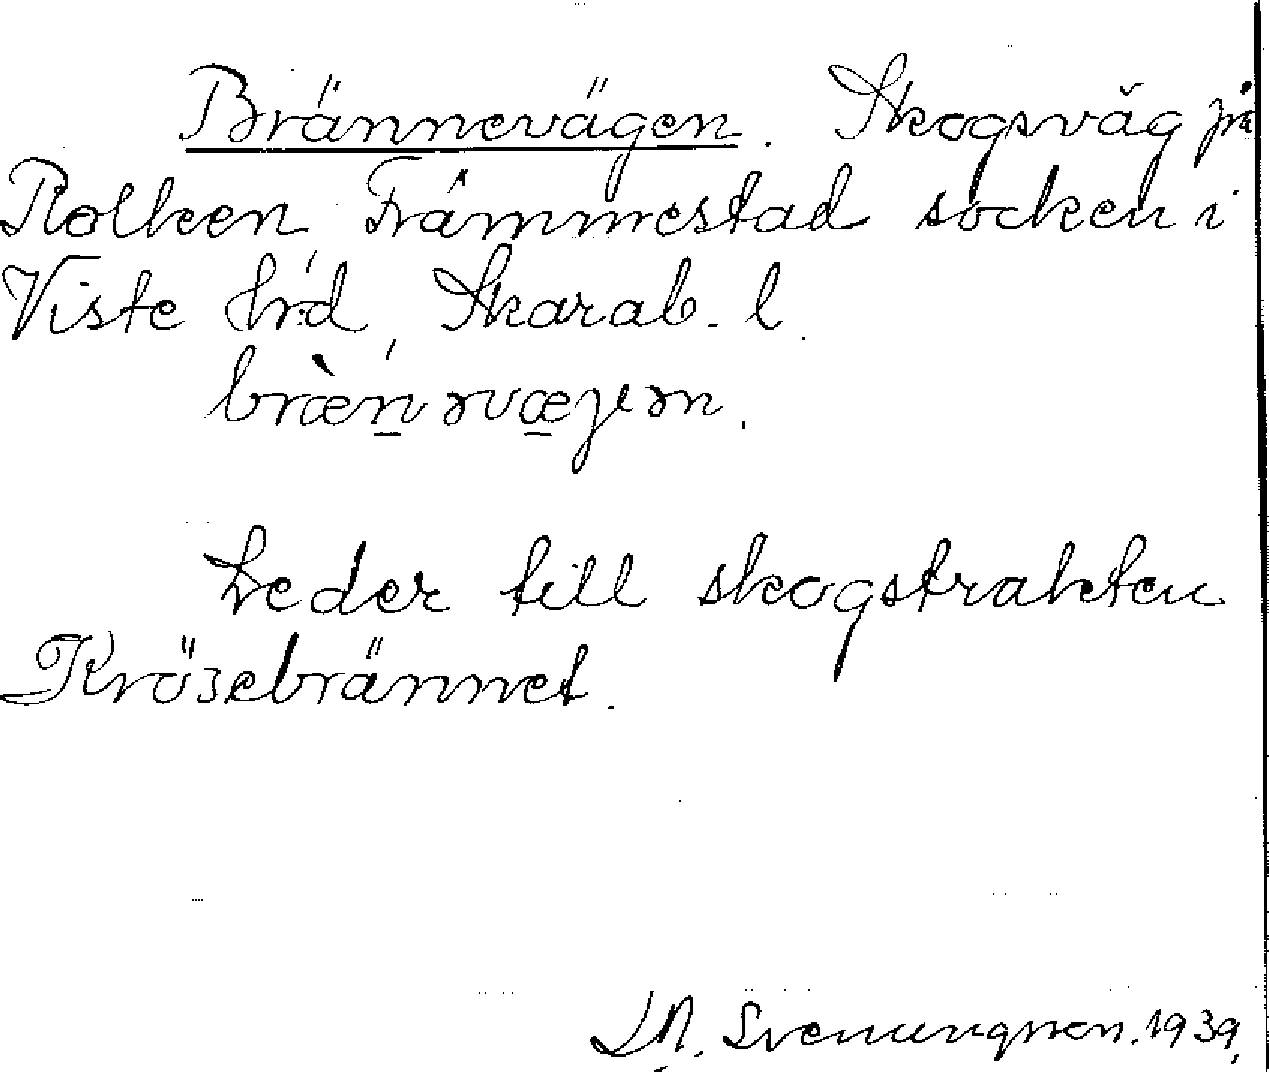 Brännevägen. Skogsväg på
Rolken, Främmestad socken i
Viste hrd, Skarab. l.
Leder till skogstrakten
Krösebrännet.
Svenungsson. 1939.